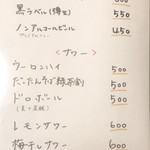 黒ラベル(樽生) 550
ノンアルコールビール 450
<サワー>
ウーロンハイ 500
だったんそば緑茶割 500
ドロボール 500
レモンサワー 600
梅干しサワー 600